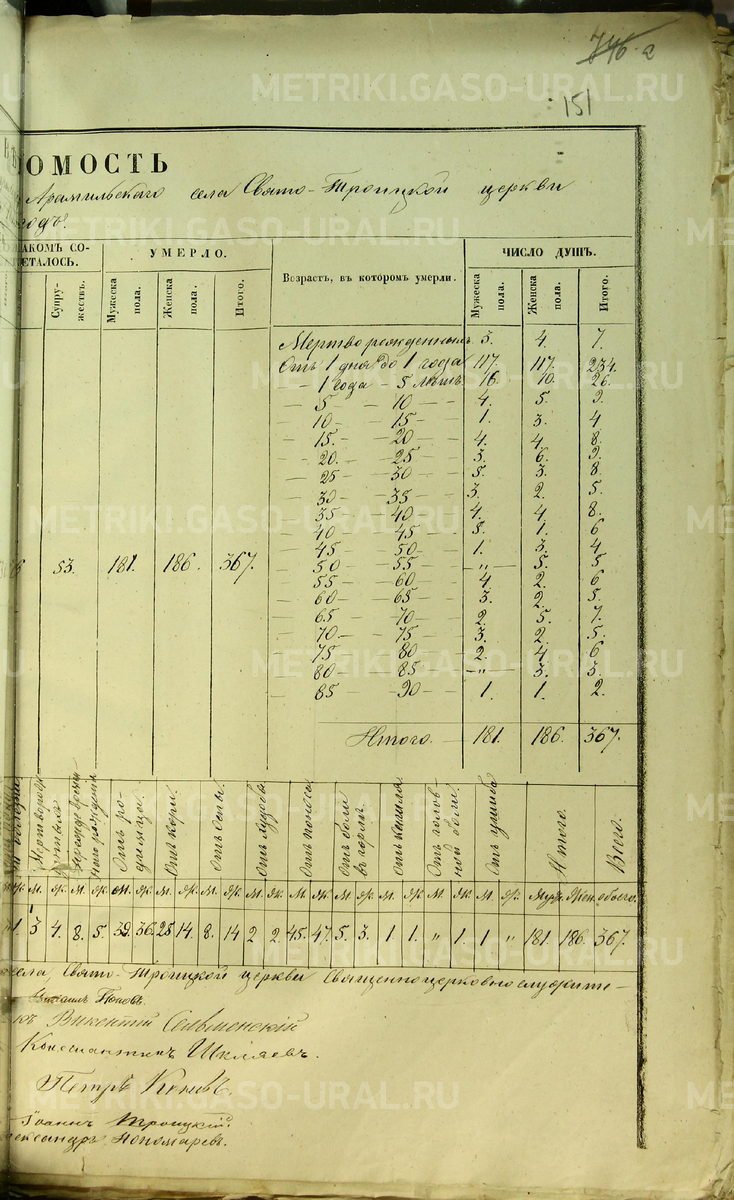 746 a
151
ОМОСТЬ
Арамильскаго села Свято-Троицкой церкви
годъ.
АКОМЪ СО-
ЕТАЛОСЬ.
УМЕРЛО.
Возрастъ, въ которомъ умерли.
ЧИСЛО ДУШЪ.
Супружествъ.
Мужеска пола.
Женска пола.
Итого.
Мужеска пола.
Женска пола.
Итого.
Мертворожденныхъ 3. 4. 7.
Отъ 1 дня до 1 года 117. 117. 234.
— 1 года — 5 лѣтъ 16. 10. 26.
— 5 — 10 — 4. 5. 9.
— 10 — 15 — 1. 3. 4
— 15. — 20 — 4. 4. 8.
— 20. — 25 — 3. 6. 9.
— 25 — 30 — 5. 3. 8.
— 30 — 35 — 3. 2. 5.
— 35 — 40 — 4. 4. 8.
— 40 — 45 — 5. 1. 6
— 45 — 50 — 1. 3. 4
— 50 — 55 — „ — 5. 5
— 55 — 60 — 4. 2. 6
— 60 — 65 — 3. 2. 5.
— 65 — 70 — 2. 5. 7.
— 70 — 75 — 3. 2. 5.
— 75 — 80 — 2. 4. 6
— 80 — 85 — „ 3. 3.
— 85 — 90 — 1. 1. 2.
53. 181. 186. 367.
Итого. — 181. 186. 367.
Мертворожденныхъ
Отъ родимца.
Отъ кори.
Отъ оспы.
Отъ поноса.
Отъ боли въ горлѣ.
Отъ кашля.
Отъ головной боли.
Отъ ушиба
Итого.
Всего.
м. ж. м. ж. м. ж. м. ж. м. ж. м. ж. м. ж. м. ж. м. ж. м. ж. м. ж. Муж. Жен. обоего.
1. 3 4. 8. 5. 39. 36. 25 14. 8. 14 2 2. 45. 47. 5. 3. 1. 1. „ 1. 1 „ 181. 186. 367.
села, Свято-Троицкой церкви Священноцерковнослужите-
Михаилъ Поповъ.
Викентій Сельменскій
Константинъ Шиляевъ.
Петръ
Іоаннъ Троицкій.
Александръ Пономаревъ.
METRIKI.GASO-URAL.RU
METRIKI.GASO-URAL.RU
METRIKI.GASO-URAL.RU
METRIKI.GASO-URAL.RU
METRIKI.GASO-URAL.RU
METRIKI.GASO-URAL.RU